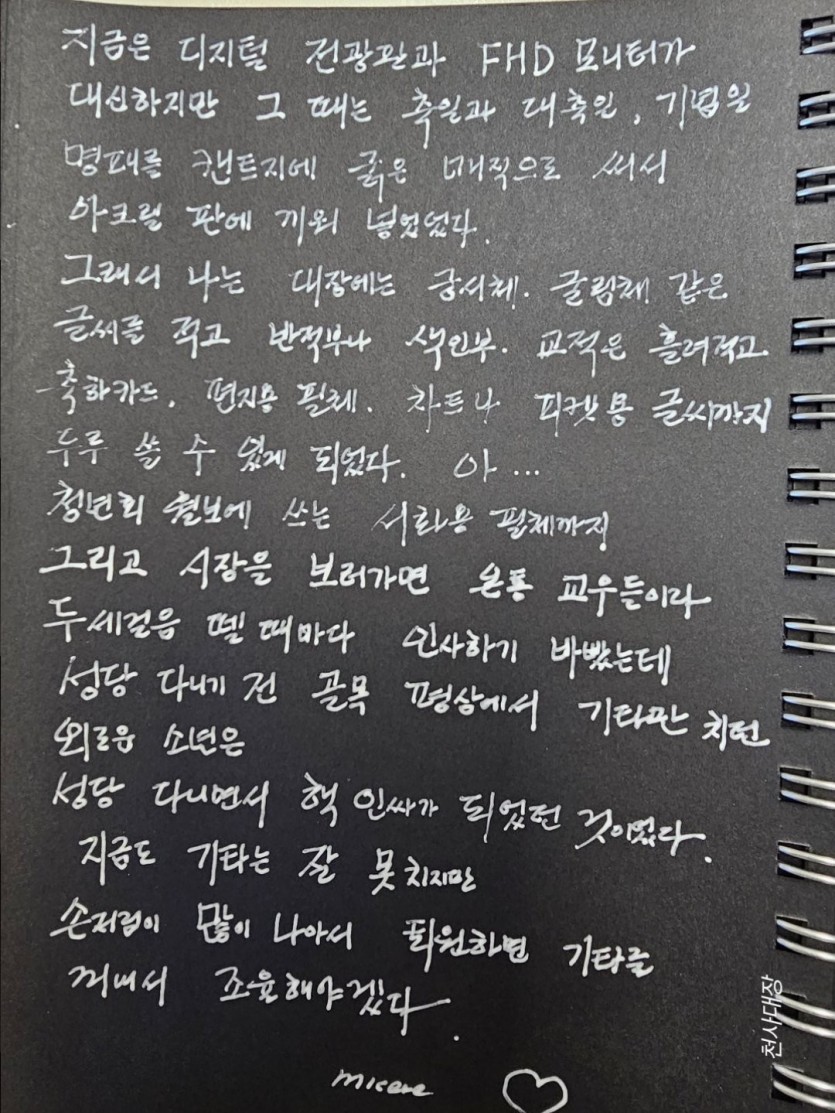 지금은 디지털 전광판과 FHD 모니터가
대신하지만 그 때는 축일과 대축일, 기념일
명패를 캔트지에 굵은 매직으로 써서
아크릴 판에 끼워 넣었었다.
그래서 나는 대장에는 궁서체. 굴림체 같은
글씨를 적고 반적부나 색인부. 교적은 흘려적고.
축하카드, 편지용 필체. 차트나 피켓용 글씨까지
두루 쓸 수 있게 되었다. 아...
청년회 월보에 쓰는 서화용 필체까지
그리고 시장을 보러가면 온통 교우들이라
두세걸음 뗄 때마다 인사하기 바빴는데
성당 다니기 전 골목 평상에서 기타만 치던
외로운 소년은
성당 다니면서 핵 인싸가 되었던 것이었다.
지금도 기타는 잘 못 치지만
손저림이 많이 나아서 퇴원하면 기타를
꺼내서 조율해야겠다.
천사대장